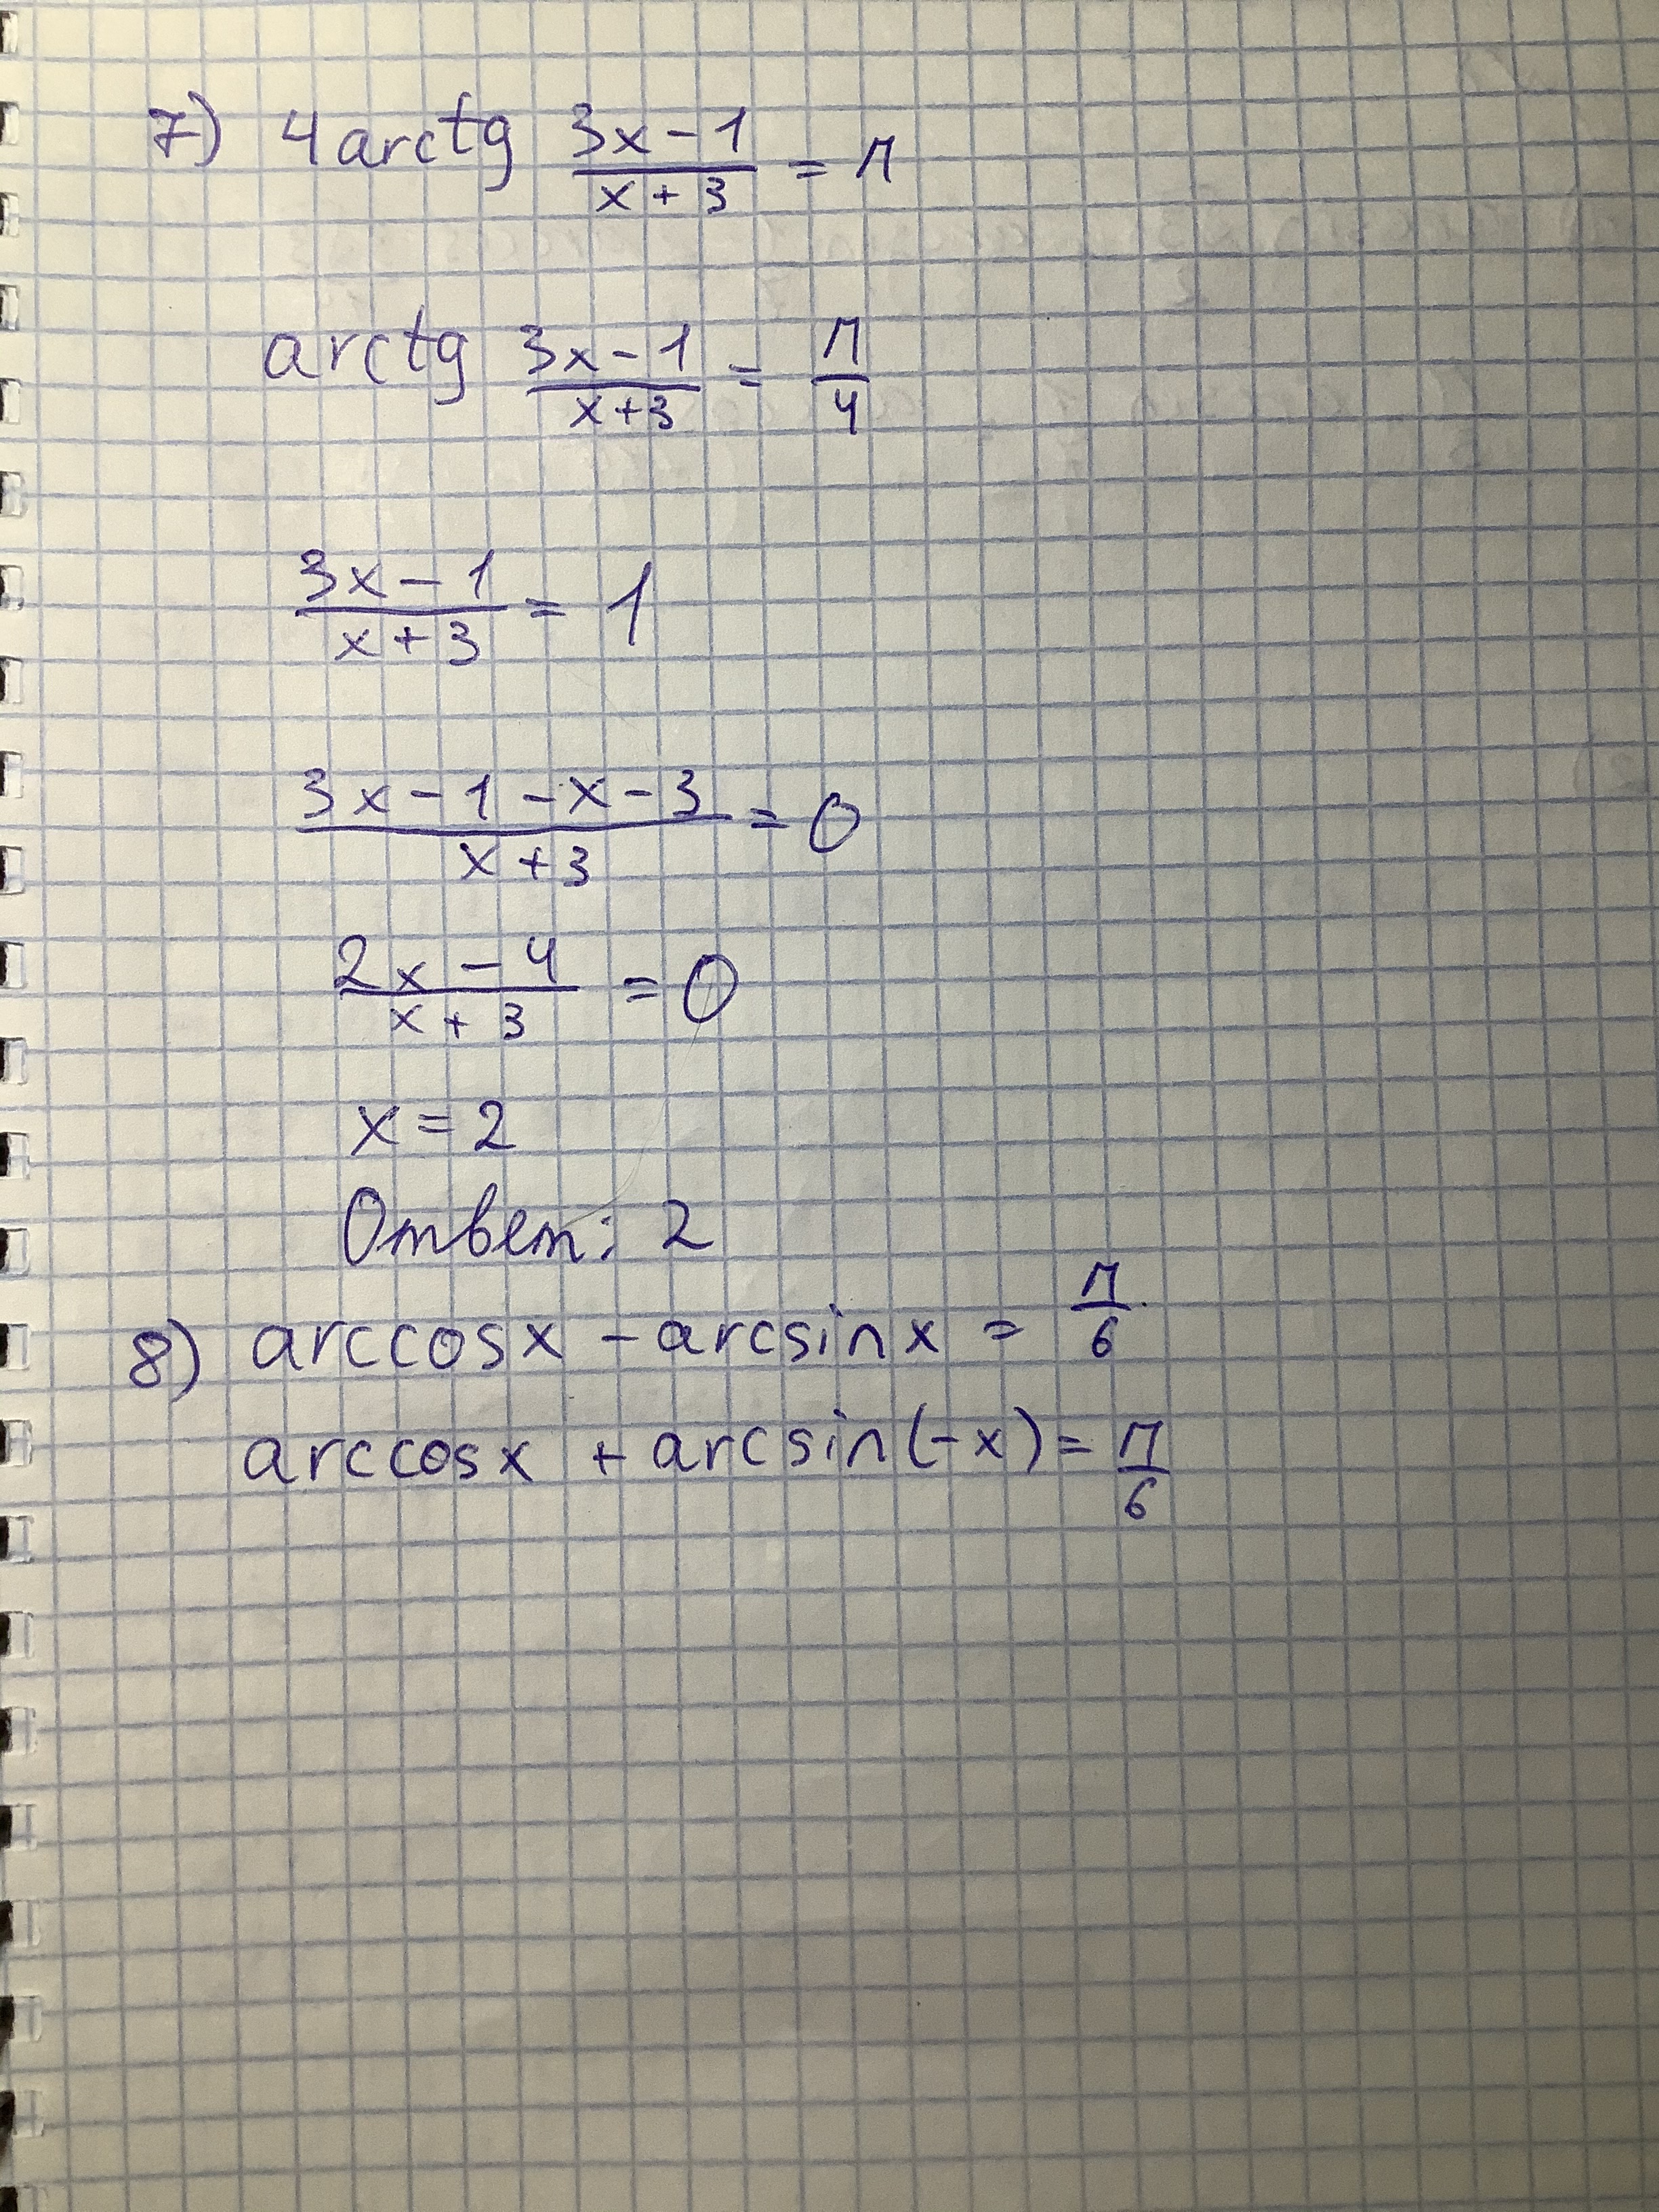 7) 4 arctg (3x-1)/(x+3) = π
arctg (3x-1)/(x+3) = π/4
(3x-1)/(x+3) = 1
(3x-1-x-3)/(x+3) = 0
(2x-4)/(x+3) = 0
x = 2
Ответ: 2
8) arccosx - arcsinx = π/6
arccosx + arcsin(-x) = π/6